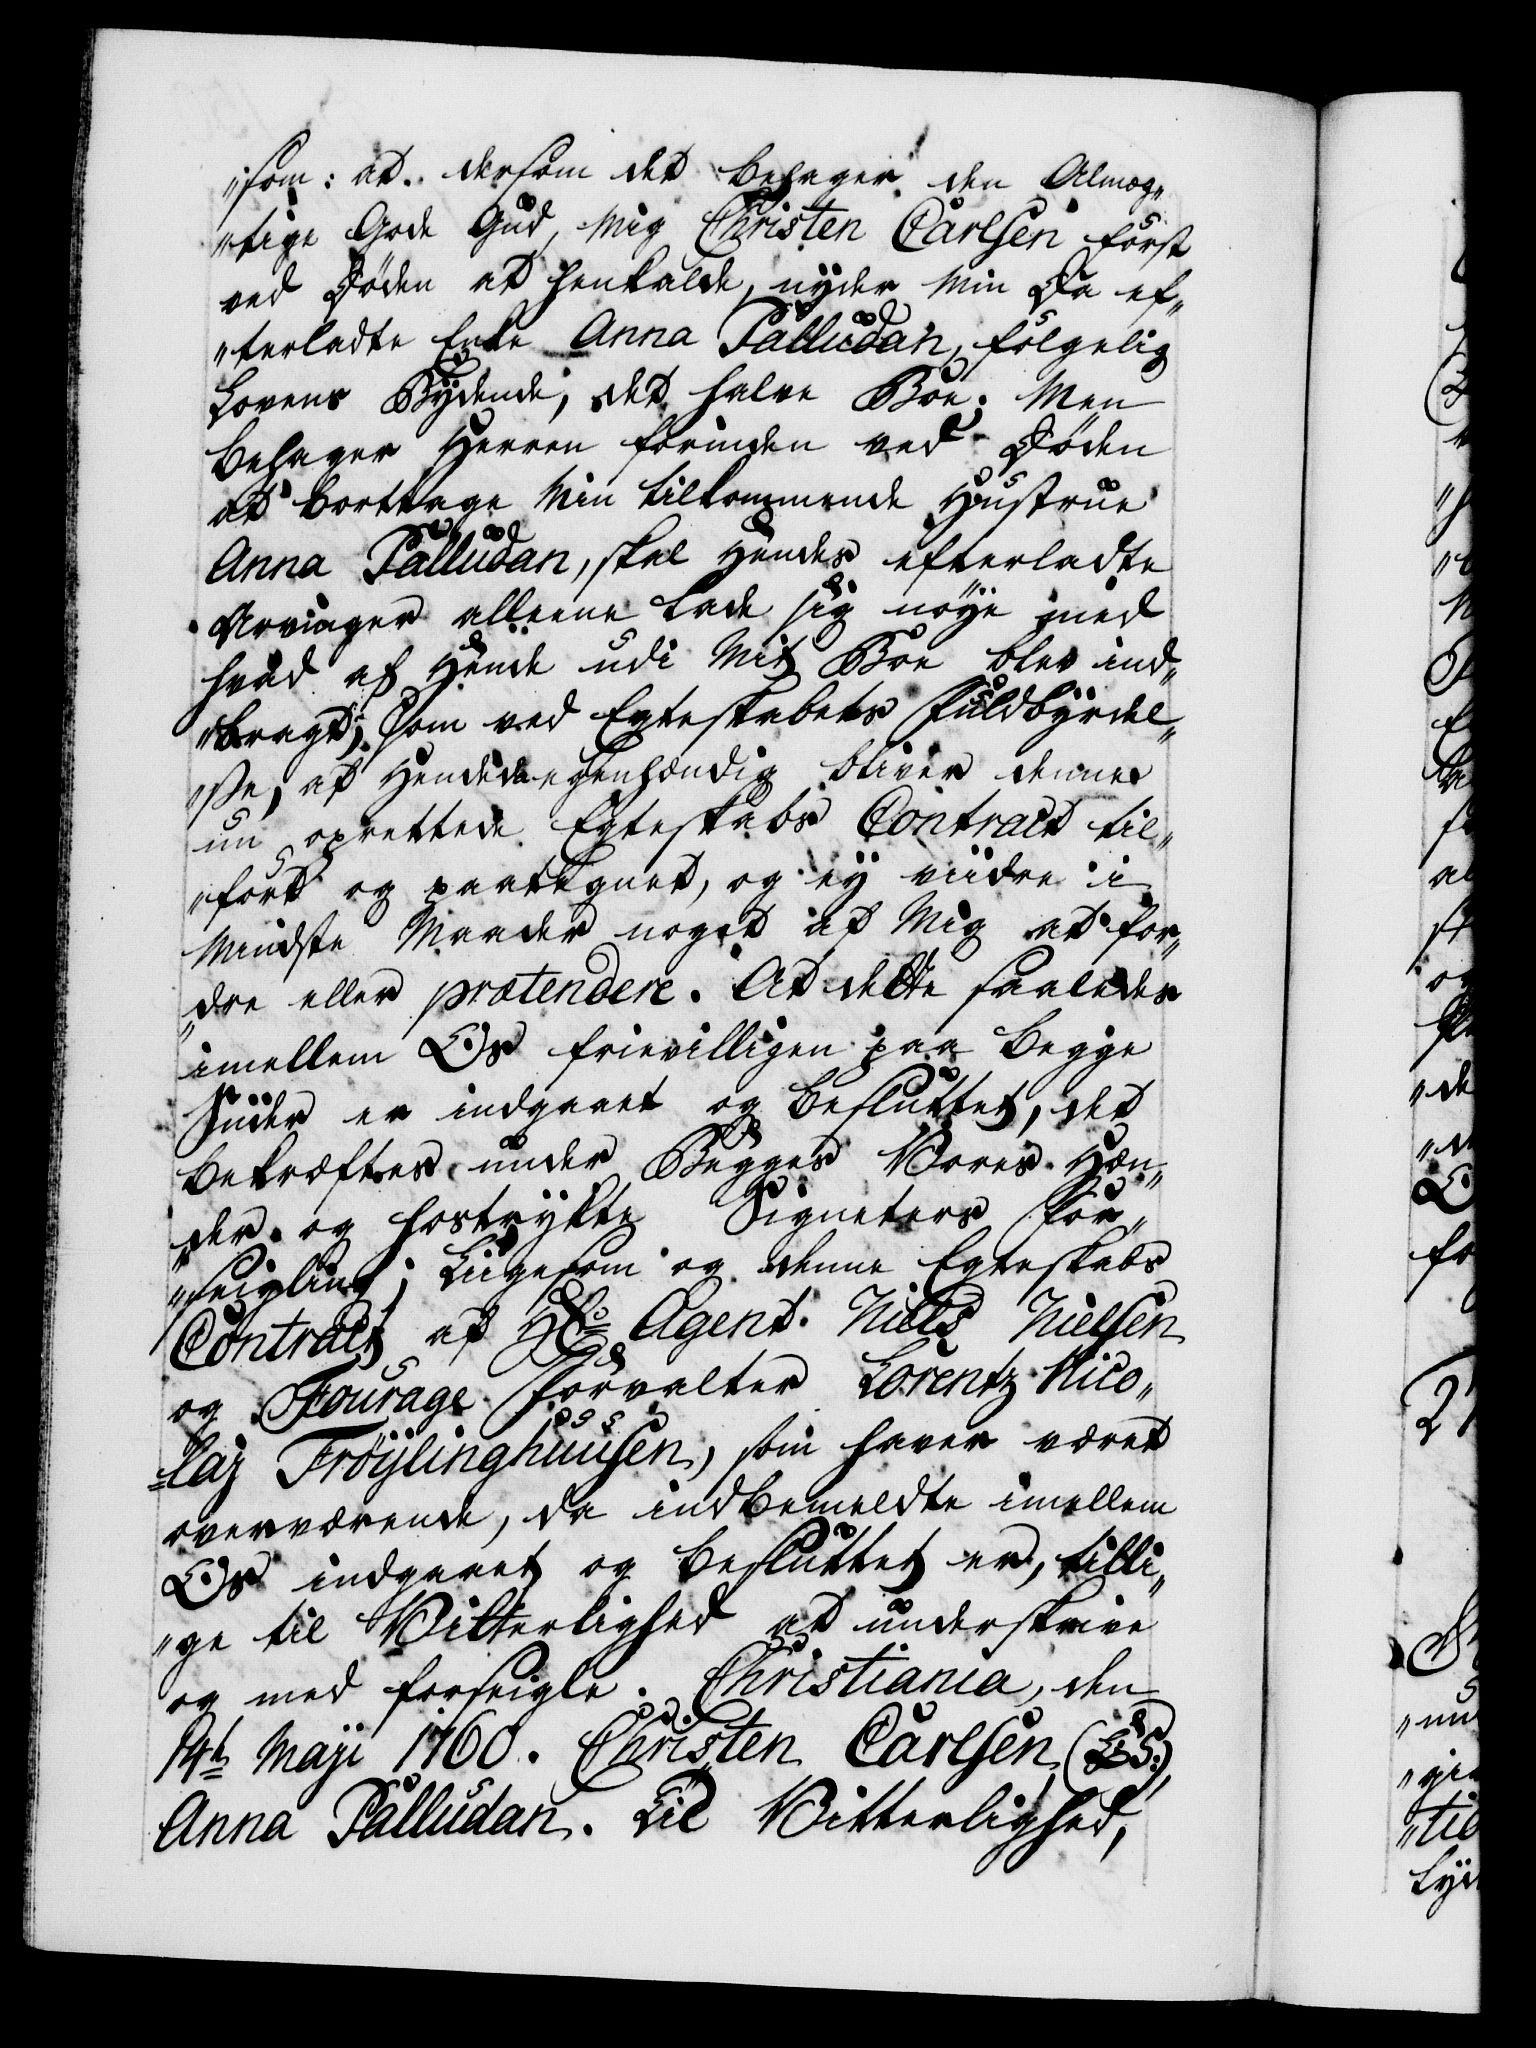 "som: at dersom det behager den Almæg„
„tige Gode Gud, Mig Christen Carlsen først
ved Døden at henkalde, nyder Min Da ef„
„terladte Enke Anna Palludan, følgelig
Lovens Bydende, det halve Boe; Men
behager Herren forinden ved Døden
at borttage Min tilkommende Hustrue
Anna Palludan, skal Hendes efterladte
Arvinger alleene lade sig nøye med
hvad af Hende udi Mit Boe blev ind„
„bragt; Som ved Egteskabets Fuldbyrdel„
„se, af Hende egenhændig bliver denne
nu oprettede Egteskabs Contract til„
„ført og paategnet, og ey viidre i
Mindste Maader noget af Mig at for„
„dre eller prætendere. At dette saaledes
imellem Os frievilligen paa begge
Siider er indgaaet og besluttet, det
bekræftes under Begges Vores Hæn„
„der og hostrykte Signeters For„
„seigling; Liigesom og denne Egteskabs
Contract af Hr Agent Niels Nielsen
og Fourage Forvalter Lorentz Nico„
„laj Frøylinghuusen, som haver været
overværende, da indbemeldte imellem
Os indgaaet og besluttet er, tilli„
„ge til Vitterlighed at underskrive
og med forseigle. Christiania, den
14de Maji 1760. Christen Carlsen (L:S:)
Anna Palludan. Til Vitterlighed,